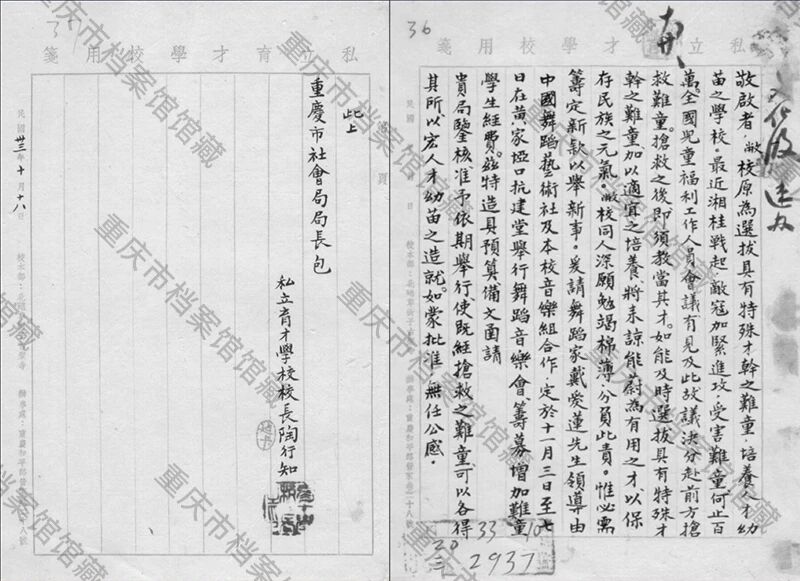 36
私立育才學校用箋
敬啟者，敝校原為選拔具有特殊才幹之難童，培養人才幼
苗之學校。最近湘桂戰起，敵寇加緊進攻，受害難童何止百
萬。全國兒童福利工作人員會議有見及此，故議決分赴前方搶
救難童。搶救之後即須教當其才。如能及時選拔具有特殊才
幹之難童加以適宜之培養，將來諒能蔚為有用之才以保
存民族之元氣。敝校同人深願勉竭棉薄，分負此責。惟必需
籌定新款以舉新事。爰請舞蹈家戴愛蓮先生領導由
中國舞蹈藝術社及本校音樂組合作，定於十一月三日至七
日在黃家埡口抗建堂舉行舞蹈音樂會籌募增加難童
學生經費。茲特造具預算備文函請
貴局鑒核准予依期舉行，使既經搶救之難童可以各得
其所以宏人才幼苗之造就。如蒙批准，無任公感。
民國
33 10
20
2937
35
私立育才學校用箋
此上
重慶市社會局局長包
私立育才學校校長陶行知
民國卅三年十月十八日
重庆市档案馆馆藏